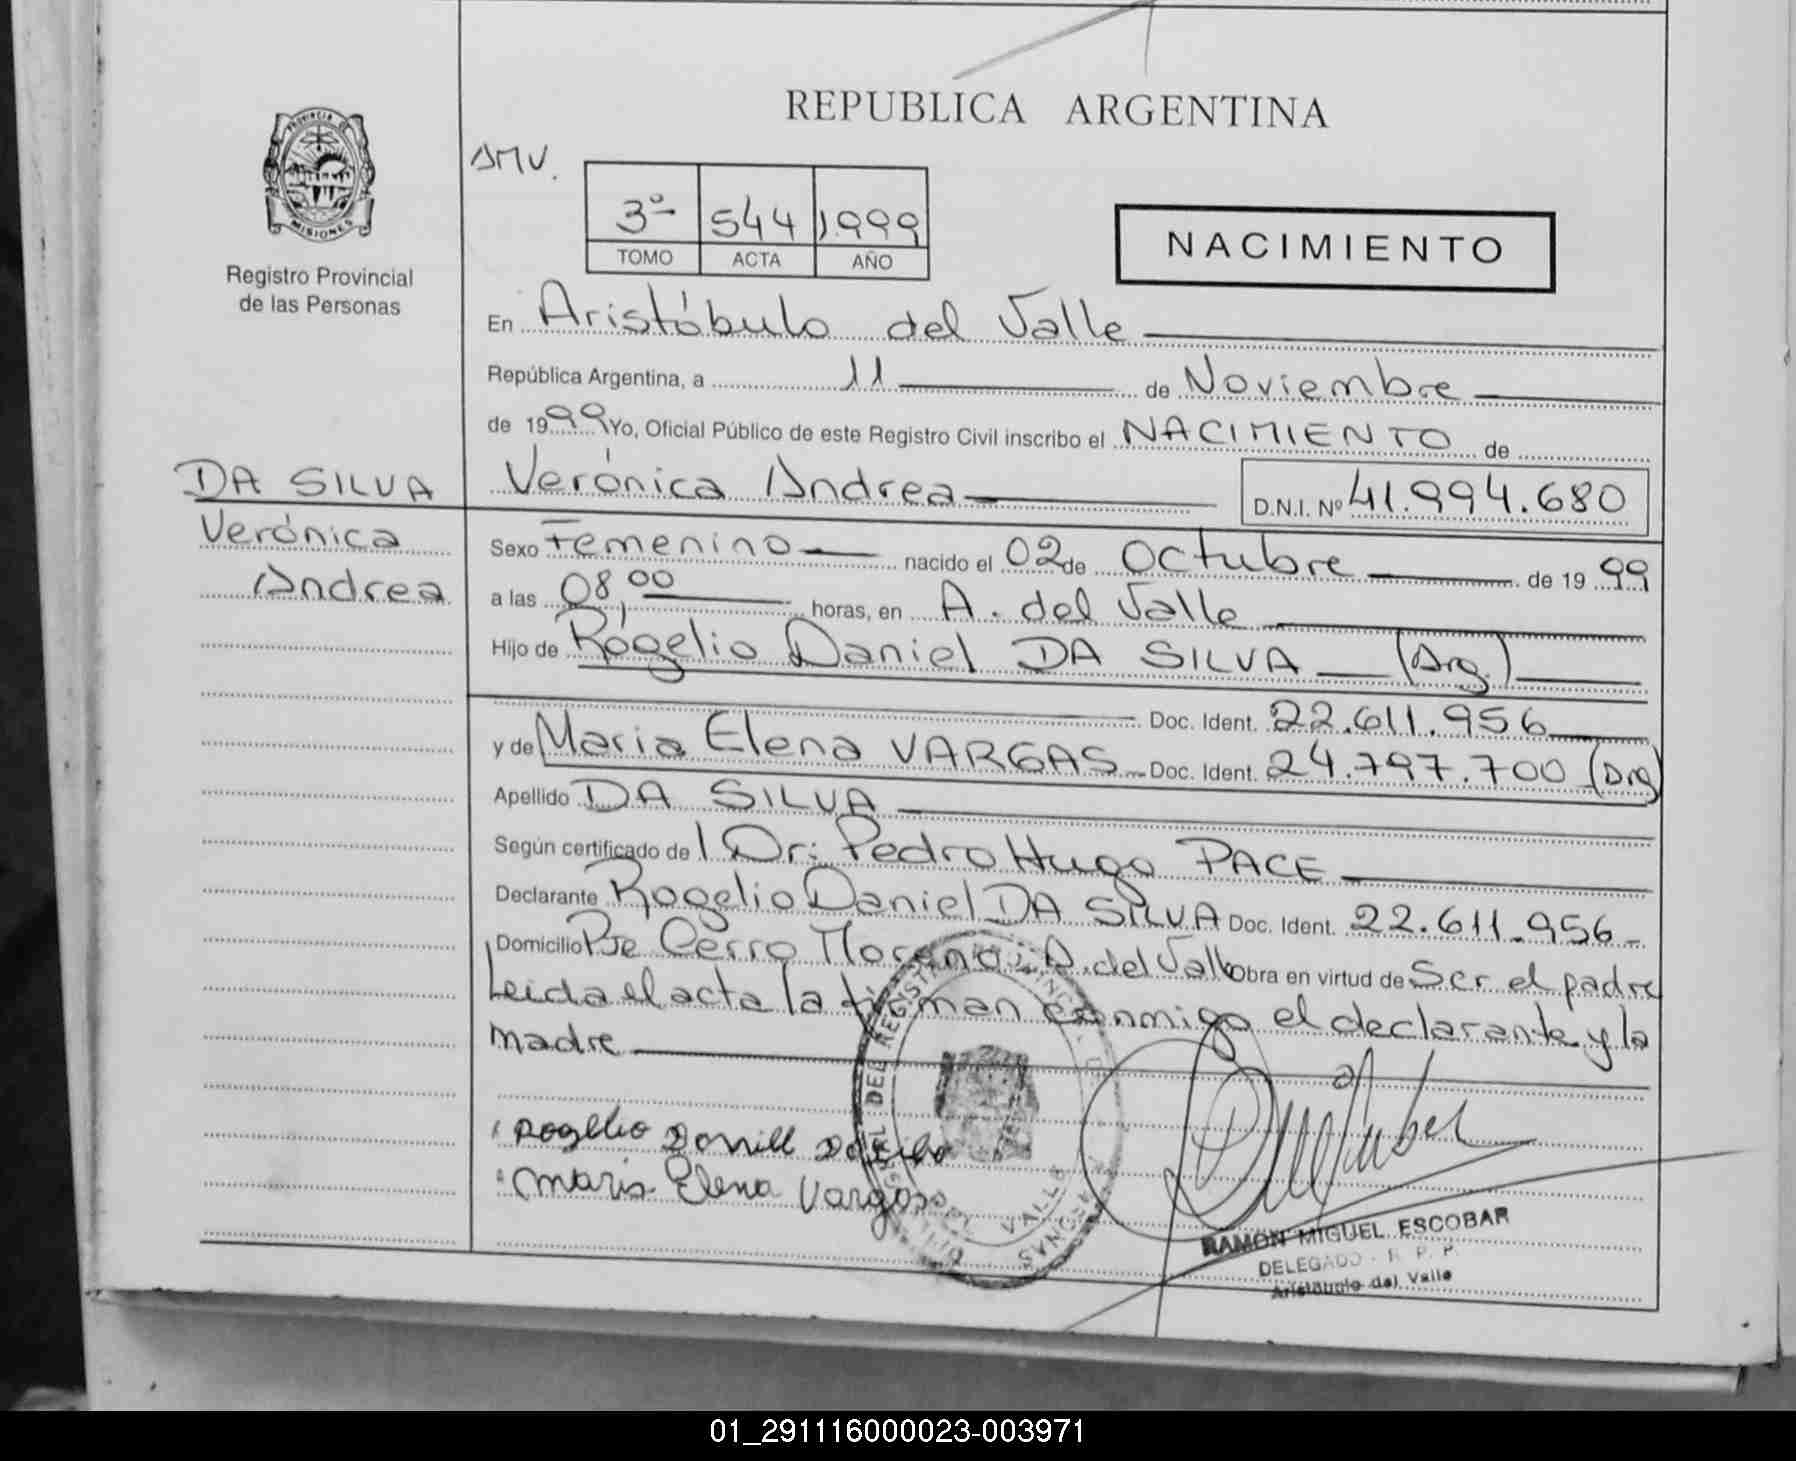 REPUBLICA ARGENTINA
PROVINCIA DE
MISIONES
Registro Provincial
de las Personas
3º 544 1999
TOMO ACTA AÑO
NACIMIENTO
En Aristóbulo del Valle
República Argentina, a 11 de Noviembre
de 1999 Yo, Oficial Público de este Registro Civil inscribo el NACIMIENTO de
DA SILVA
Verónica
Andrea
Verónica Andrea D.N.I. Nº 41.994.680
Sexo Femenino nacido el 02 de Octubre de 1999
a las 08,00 horas, en A. del Valle
Hijo de Rogelio Daniel DA SILVA (Arg.)
Doc. Ident. 22.611.956
y de Maria Elena VARGAS Doc. Ident. 24.797.700 (Arg)
Apellido DA SILVA
Según certificado de l Dr: Pedro Hugo PACE
Declarante Rogelio Daniel DA SILVA Doc. Ident. 22.611.956
Domicilio Pje Cerro Moreno, A. del Valle Obra en virtud de Ser el padre
Leida el acta la firman conmigo el declarante y la
madre
Maria Elena Vargas
RAMON MIGUEL ESCOBAR
DELEGADO - R. P. P.
Aristóbulo del Valle
01_291116000023-003971